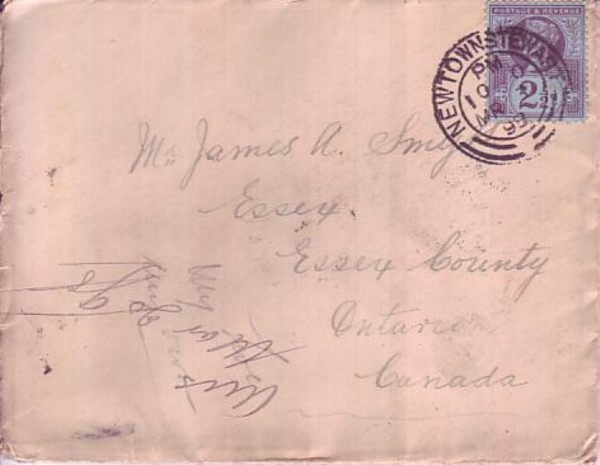 POSTAGE & REVENUE
2½d
NEWTOWNSTEWART
PM
MR
93
Mr James A. Smy
Essex.
Essex County
Ontario
Canada
Ans